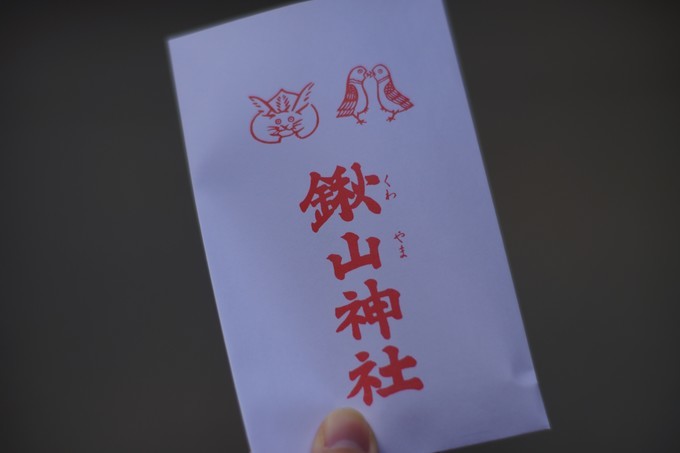 鍬山神社
くわ
やま